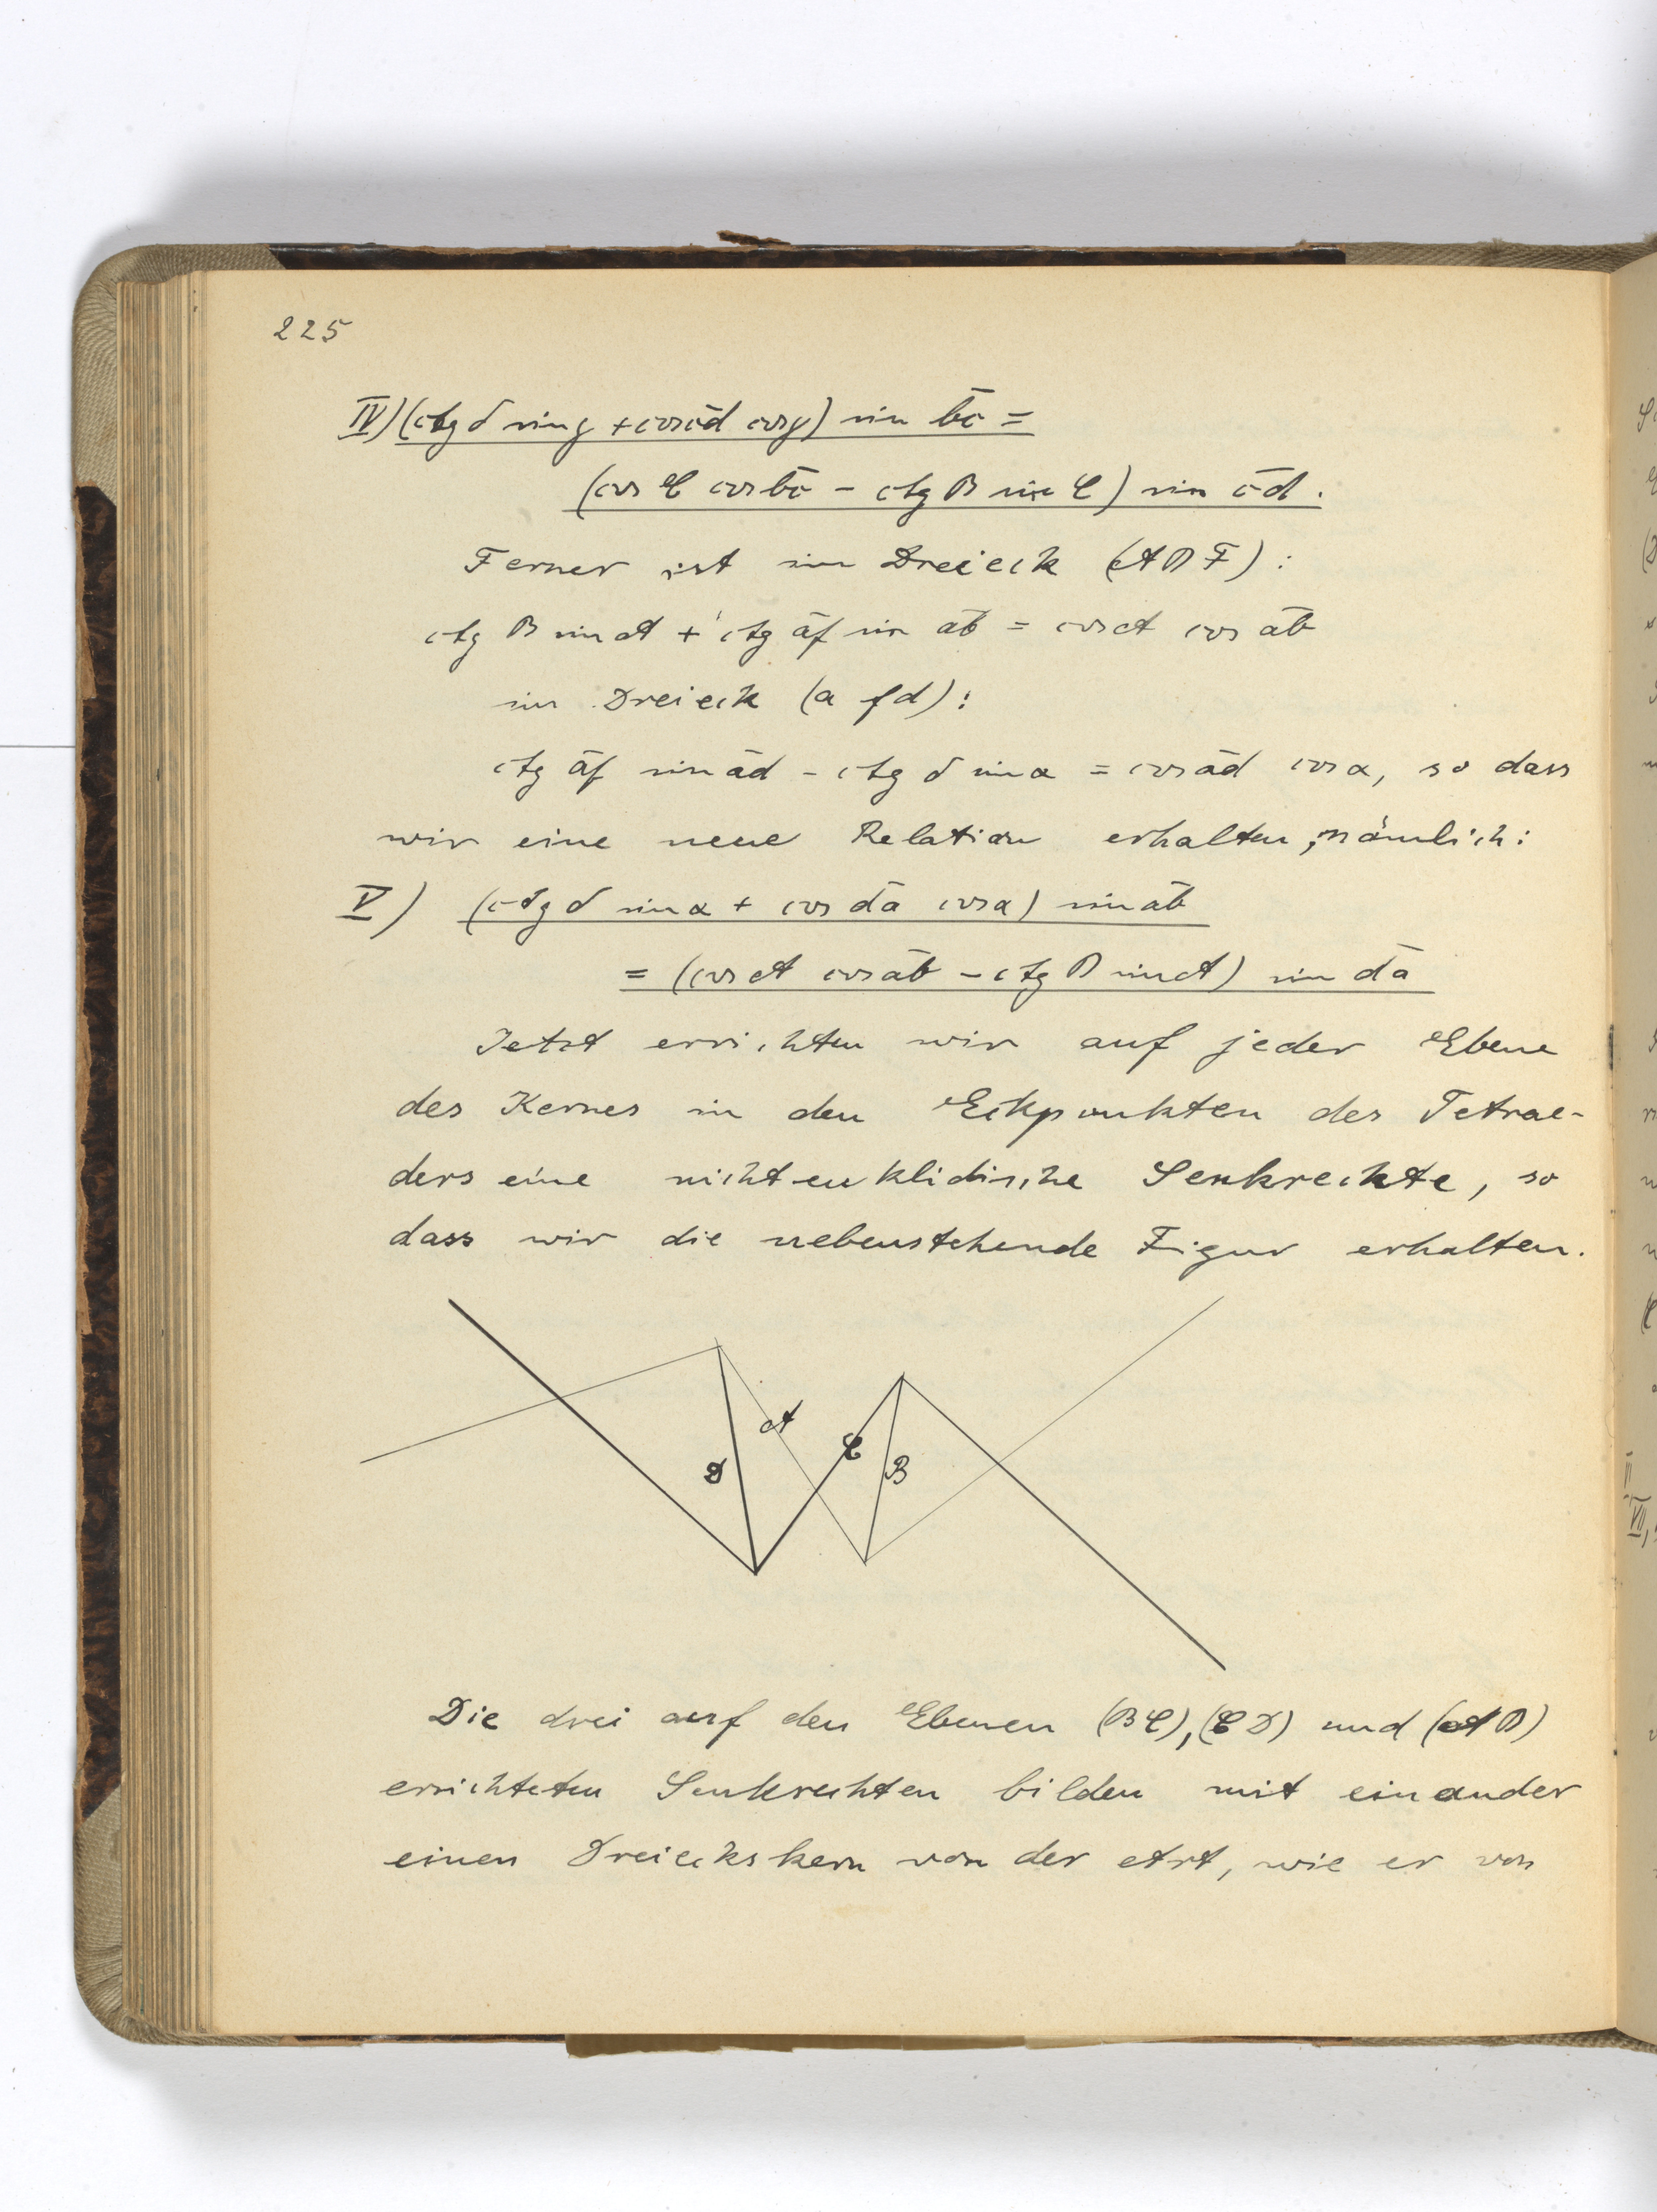 225
IV) (ctg δ sin γ + cos c̄d̄ cos γ) sin b̄c̄ =
(cos C cos b̄c̄ – ctg B sin C) sin c̄d̄.
Ferner ist im Dreieck (A B F):
ctg B sin A + ctg āf̄ sin āb̄ = cos A cos āb̄
im Dreieck (a f d):
ctg āf̄ sin ād̄ – ctg δ sin α = cos ād̄ cos α, so dass
wir eine neue Relation erhalten, nämlich:
V) (ctg δ sin α + cos d̄ā cos α) sin āb̄
= (cos A cos āb̄ – ctg B sin A) sin d̄ā
Jetzt errichten wir auf jeder Ebene
des Kernes in den Eckpunkten des Tetrae-
ders eine nichteuklidische Senkrechte, so
dass wir die nebenstehende Figur erhalten.
A
C
D
B
Die drei auf den Ebenen (BC), (CD) und (AB)
errichteten Senkrechten bilden mit einander
einen Dreieckskern von der Art, wie er von